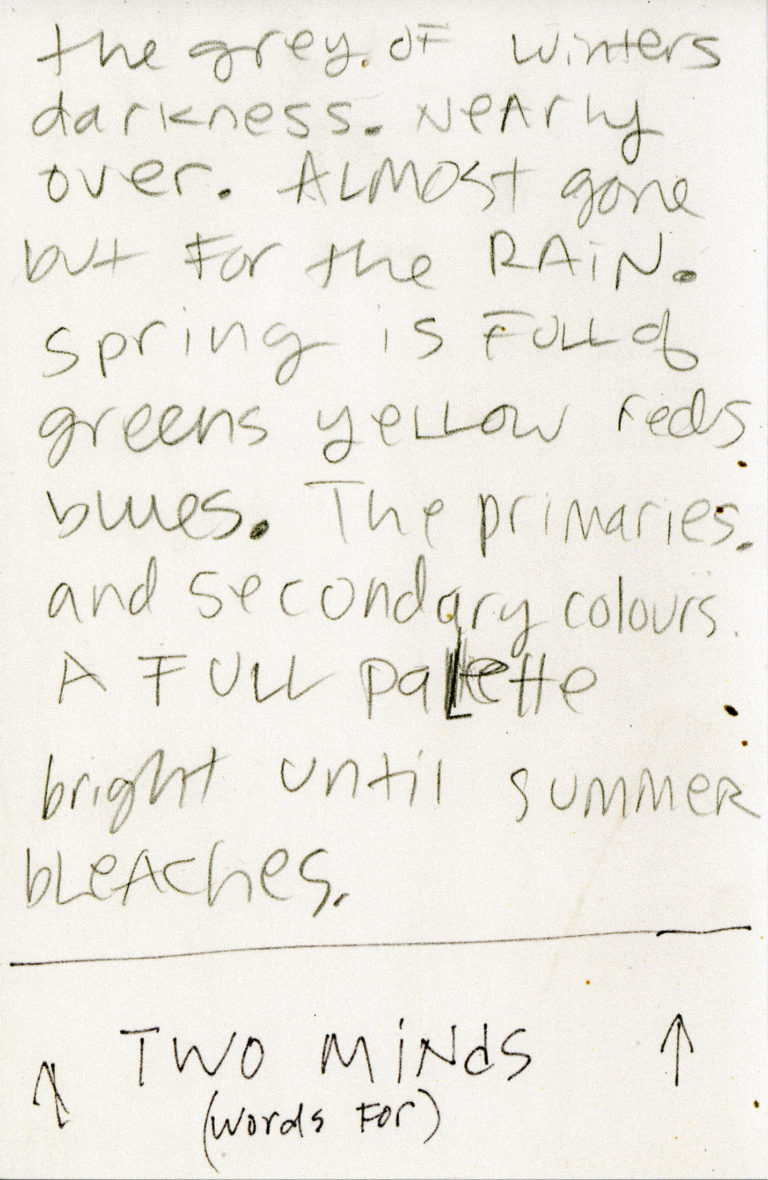 the grey. OF winters
darkness. NeArly
over. ALMOST gone
but For the RAiN.
spring is FULL of
greens yeLLow reds
blues. The primaries.
and secondary colours.
A FULL paLette
bright until summeR
bLeAches.
↑ TWO MiNdS ↑
(words For)